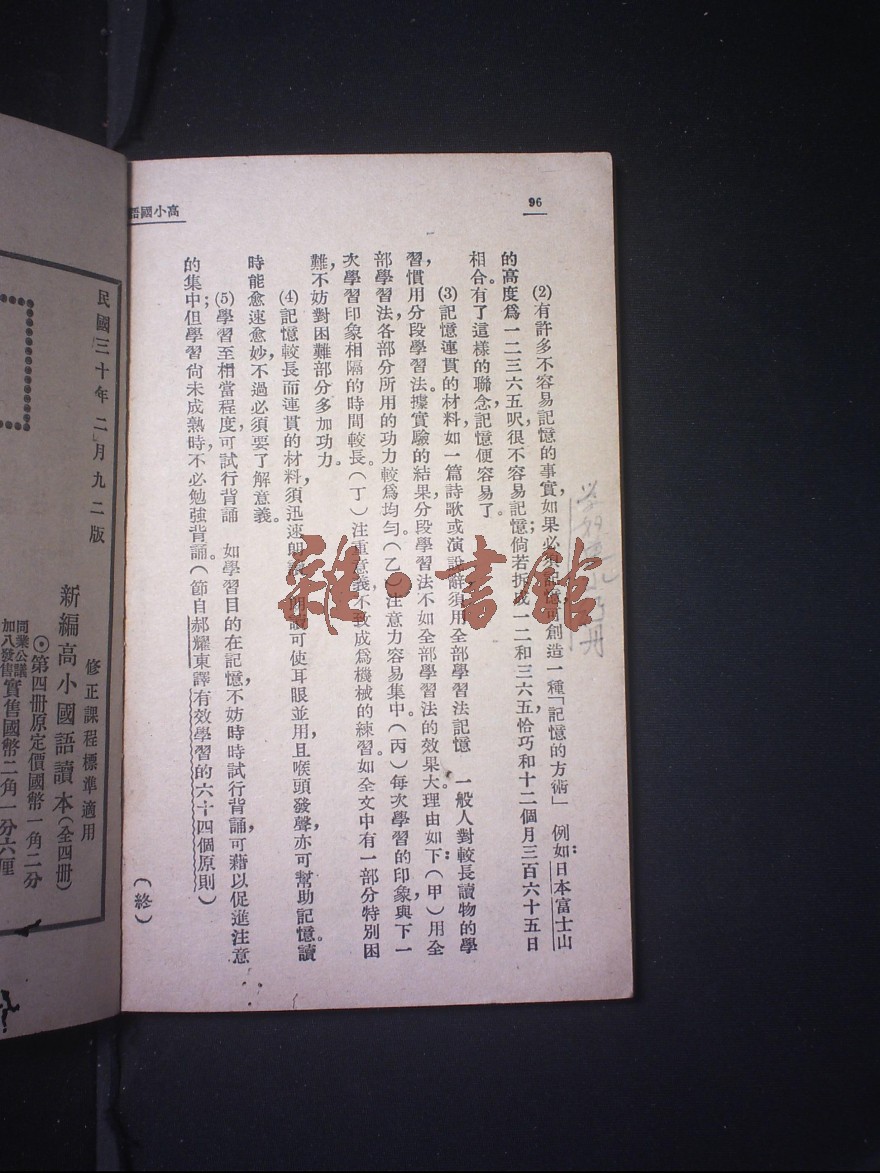 96
高小國語
(2)有許多不容易記憶的事實,如果必須記憶,可創造一種「記憶的方術」 例如:日本富士山
的高度爲一二三六五呎,很不容易記憶;倘若拆成一二和三六五,恰巧和十二個月三百六十五日
相合。有了這樣的聯念,記憶便容易了。
(3)記憶連貫的材料,如一篇詩歌或演說辭,須用全部學習法記憶 一般人對較長讀物的學
習,慣用分段學習法。據實驗的結果,分段學習法不如全部學習法的效果大。理由如下:(甲)用全
部學習法,各部分所用的功力較爲均勻。(乙)注意力容易集中。(丙)每次學習的印象,與下一
次學習印象相隔的時間較長。(丁)注重意義,不致成爲機械的練習。如全文中有一部分特別困
難,不妨對困難部分多加功力。
(4)記憶較長而連貫的材料,須迅速朗讀 朗讀可使耳眼並用,且喉頭發聲,亦可幫助記憶。讀
時能愈速愈妙,不過必須要了解意義。
(5)學習至相當程度,可試行背誦 如學習目的在記憶,不妨時時試行背誦,可藉以促進注意
的集中;但學習尚未成熟時,不必勉強背誦。(節自郝耀東譯有效學習的六十四個原則)
(終)
修正課程標準適用
新編高小國語讀本(全四冊)
第四冊原定價國幣一角二分
同業公議
加八發售
實售國幣二角一分六厘
民國三十年二月九二版
雜·書館